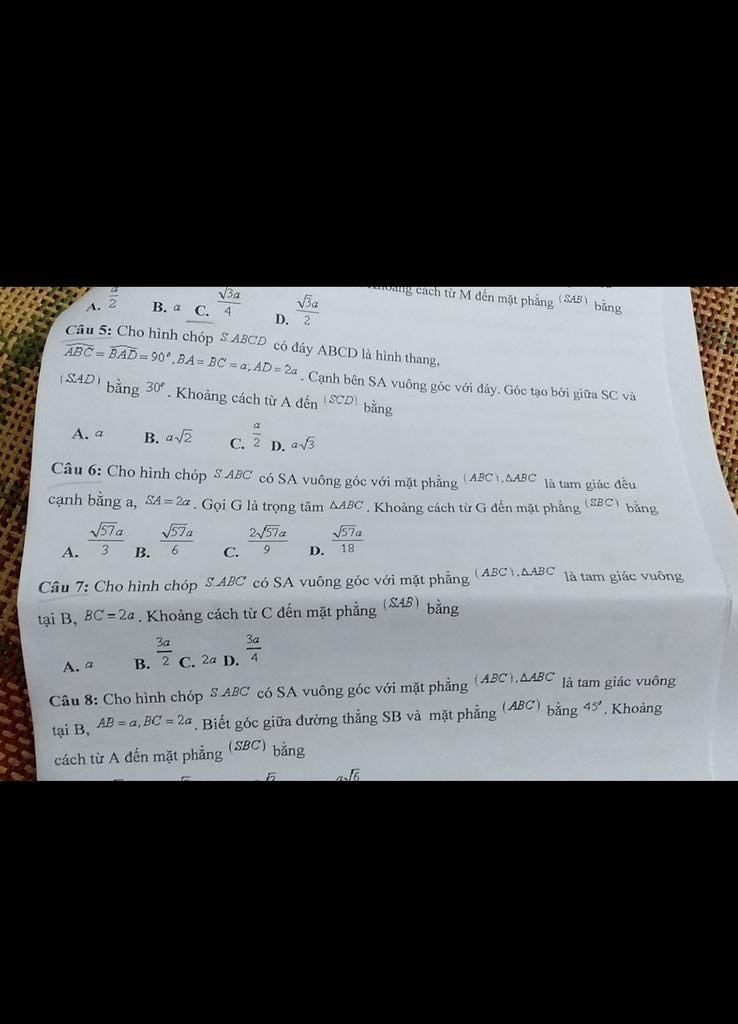 cách từ M đến mặt phẳng (SAB) bằng
A. a/2 B. a C. √3a/4 D. √3a/2
Câu 5: Cho hình chóp S.ABCD có đáy ABCD là hình thang,
ABC = BAD = 90°, BA = BC = a, AD = 2a. Cạnh bên SA vuông góc với đáy. Góc tạo bởi giữa SC và
(SAD) bằng 30°. Khoảng cách từ A đến (SCD) bằng
A. a B. a√2 C. a/2 D. a√3
Câu 6: Cho hình chóp S.ABC có SA vuông góc với mặt phẳng (ABC), ΔABC là tam giác đều
cạnh bằng a, SA = 2a. Gọi G là trọng tâm ΔABC. Khoảng cách từ G đến mặt phẳng (SBC) bằng
A. √57a/3 B. √57a/6 C. 2√57a/9 D. √57a/18
Câu 7: Cho hình chóp S.ABC có SA vuông góc với mặt phẳng (ABC), ΔABC là tam giác vuông
tại B, BC = 2a. Khoảng cách từ C đến mặt phẳng (SAB) bằng
A. a B. 3a/2 C. 2a D. 3a/4
Câu 8: Cho hình chóp S.ABC có SA vuông góc với mặt phẳng (ABC), ΔABC là tam giác vuông
tại B, AB = a, BC = 2a. Biết góc giữa đường thẳng SB và mặt phẳng (ABC) bằng 45°. Khoảng
cách từ A đến mặt phẳng (SBC) bằng
a√6